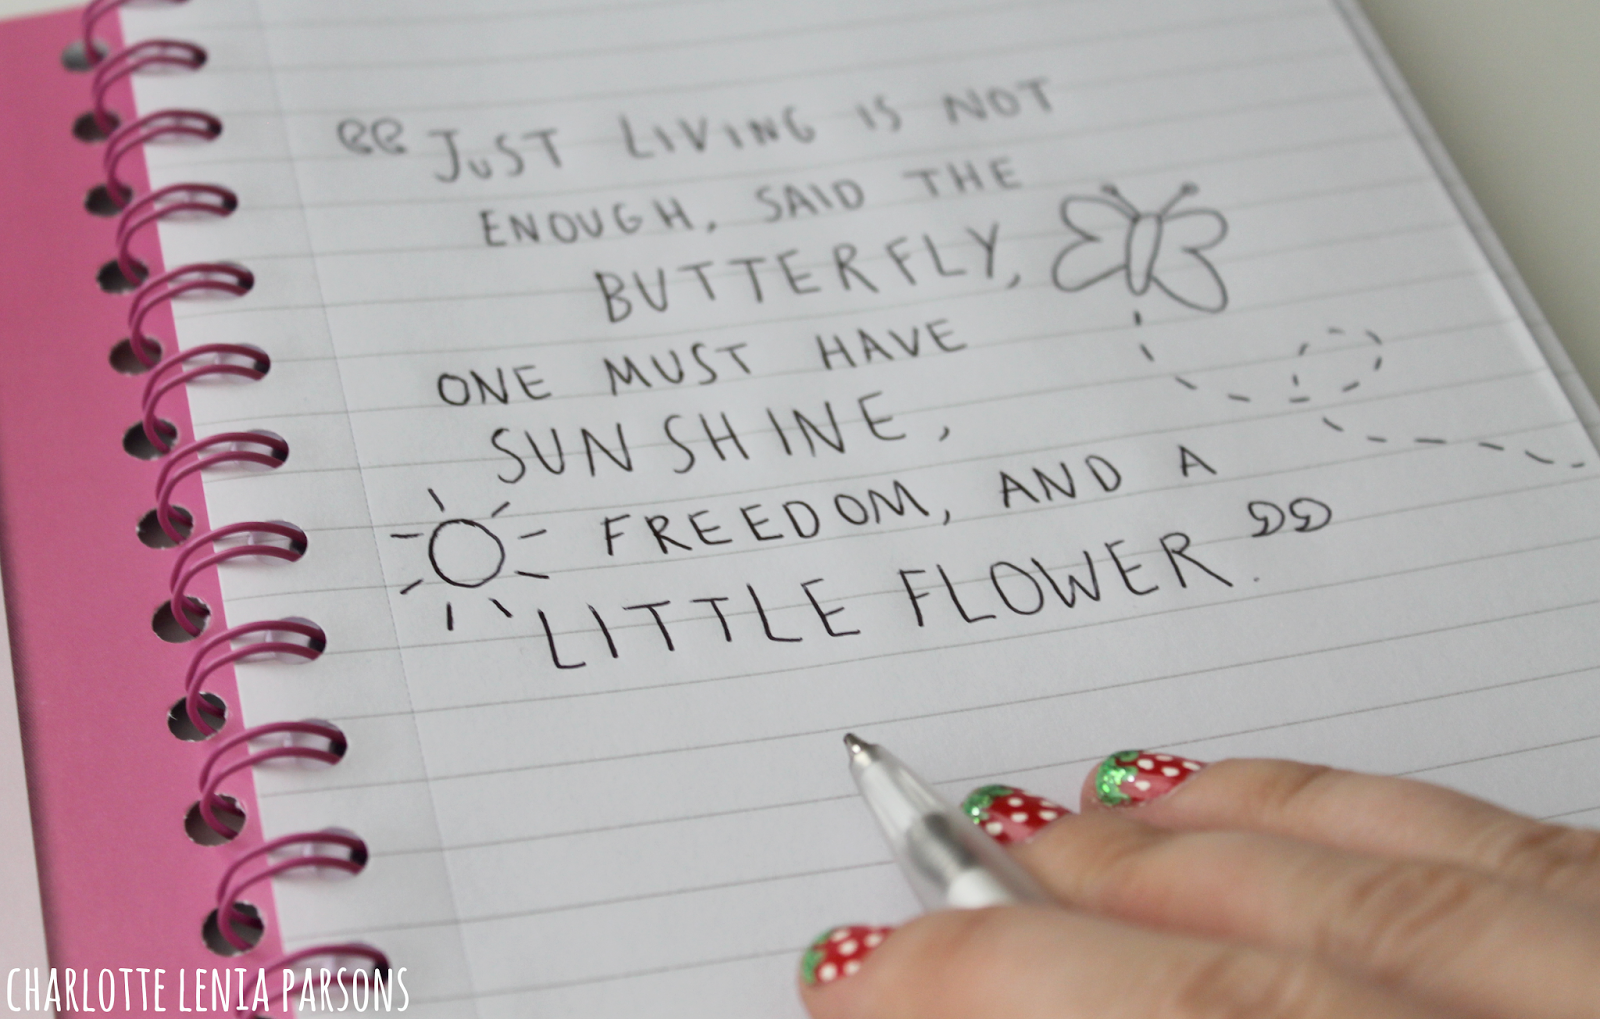 “JUST LIVING IS NOT
ENOUGH, SAID THE
BUTTERFLY,
ONE MUST HAVE
SUNSHINE,
FREEDOM, AND A
LITTLE FLOWER.”
CHARLOTTE LENIA PARSONS